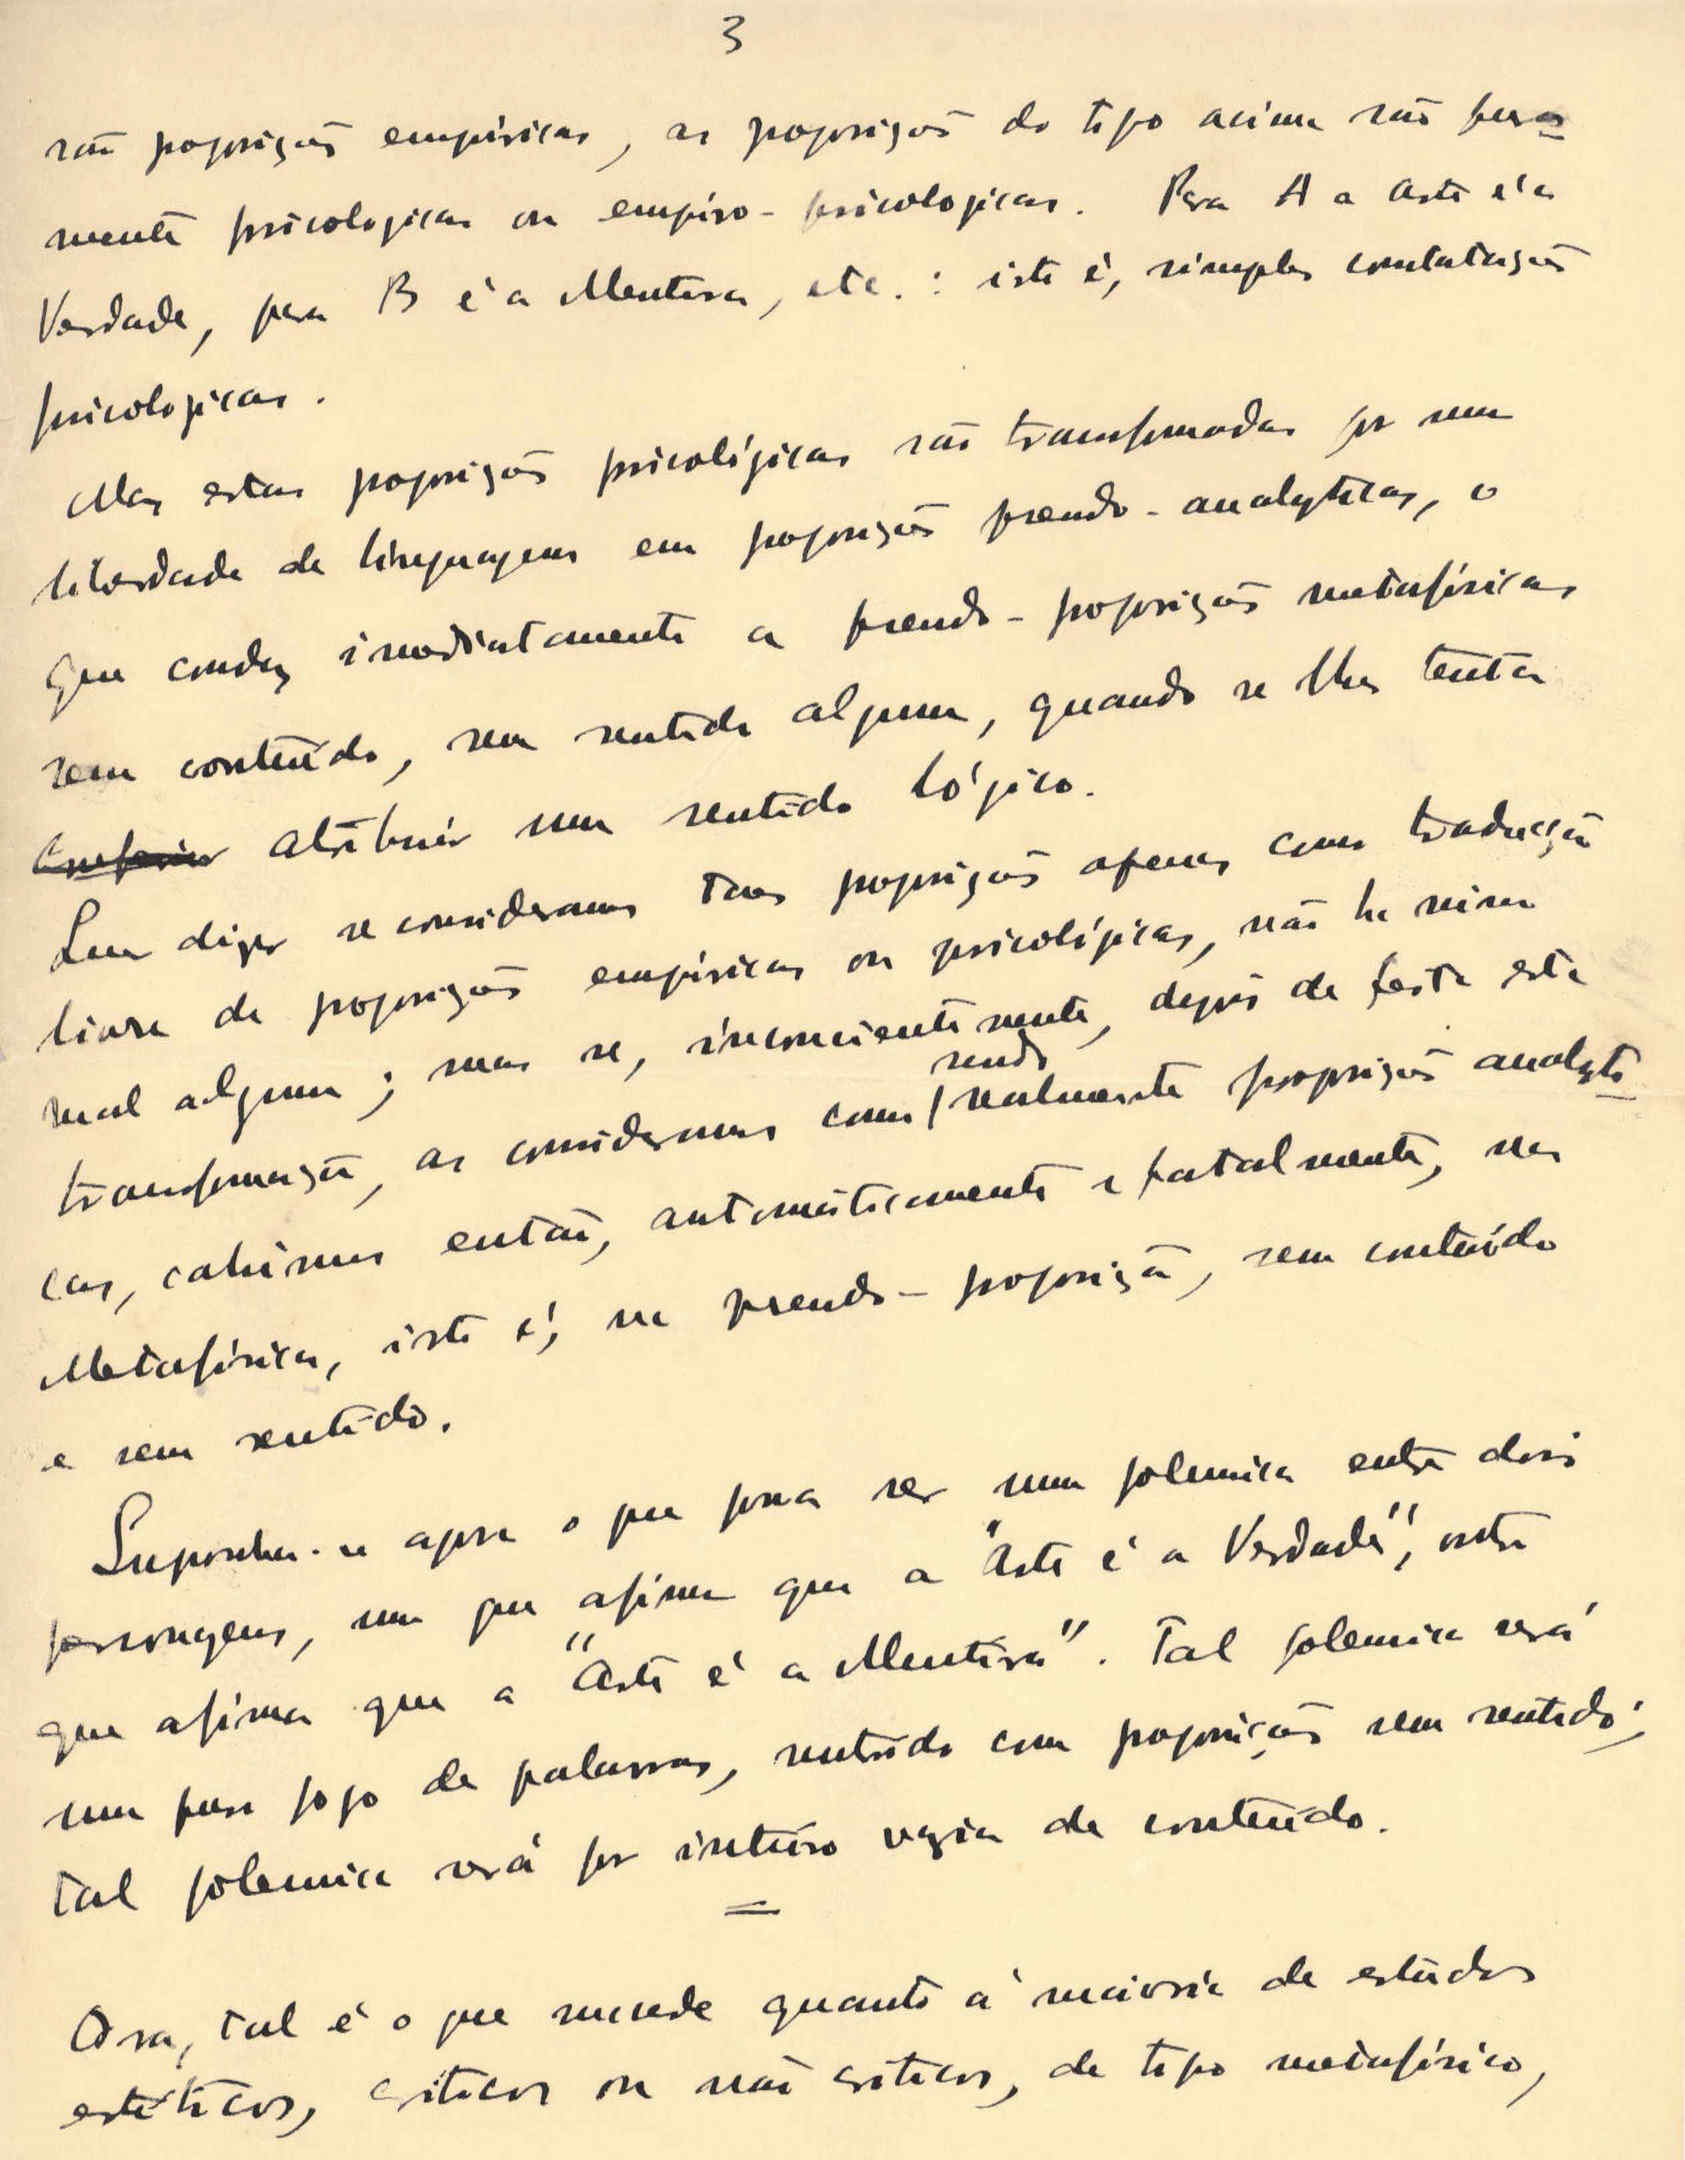 3
são proposições empíricas, as proposições do tipo acima são pura
mente psicologicas ou empiro-psicologicas. Para A a Arte é a
Verdade, para B é a Mentira, etc. : isto é, simples constatações
psicologicas.
Mas estas proposições psicológicas são transformadas por uma
liberdade de linguagem em proposições pseudo-analyticas, o
que conduz imediatamente a pseudo-proposições metafísicas
sem conteúdo, sem sentido algum, quando se lhes tenta
atribuir um sentido lógico.
Quer dizer se consideramos taes proposições apenas como traducção
livre de proposições empíricas ou psicológicas, não ha nisso
mal algum; mas se, inconscientemente, depois de feita esta
transformação, as consideramos como sendo realmente proposições analyti
cas, cahimos então, automáticamente e fatalmente, na
Metafísica, isto é, na pseudo-proposição, sem conteúdo
e sem sentido.
Suponha-se agora o que possa ser uma polemica entre dois
personagens, um que afirma que a "Arte é a Verdade", outro
que afirma que a "Arte é a Mentira". Tal polemica será
um puro jogo de palavras, nutrido com proposições sem sentido;
tal polemica será por inteiro vazia de conteúdo.
Ora, tal é o que sucede quanto á maioria de estudos
estéticos, criticos ou não criticos, de tipo metafísico,